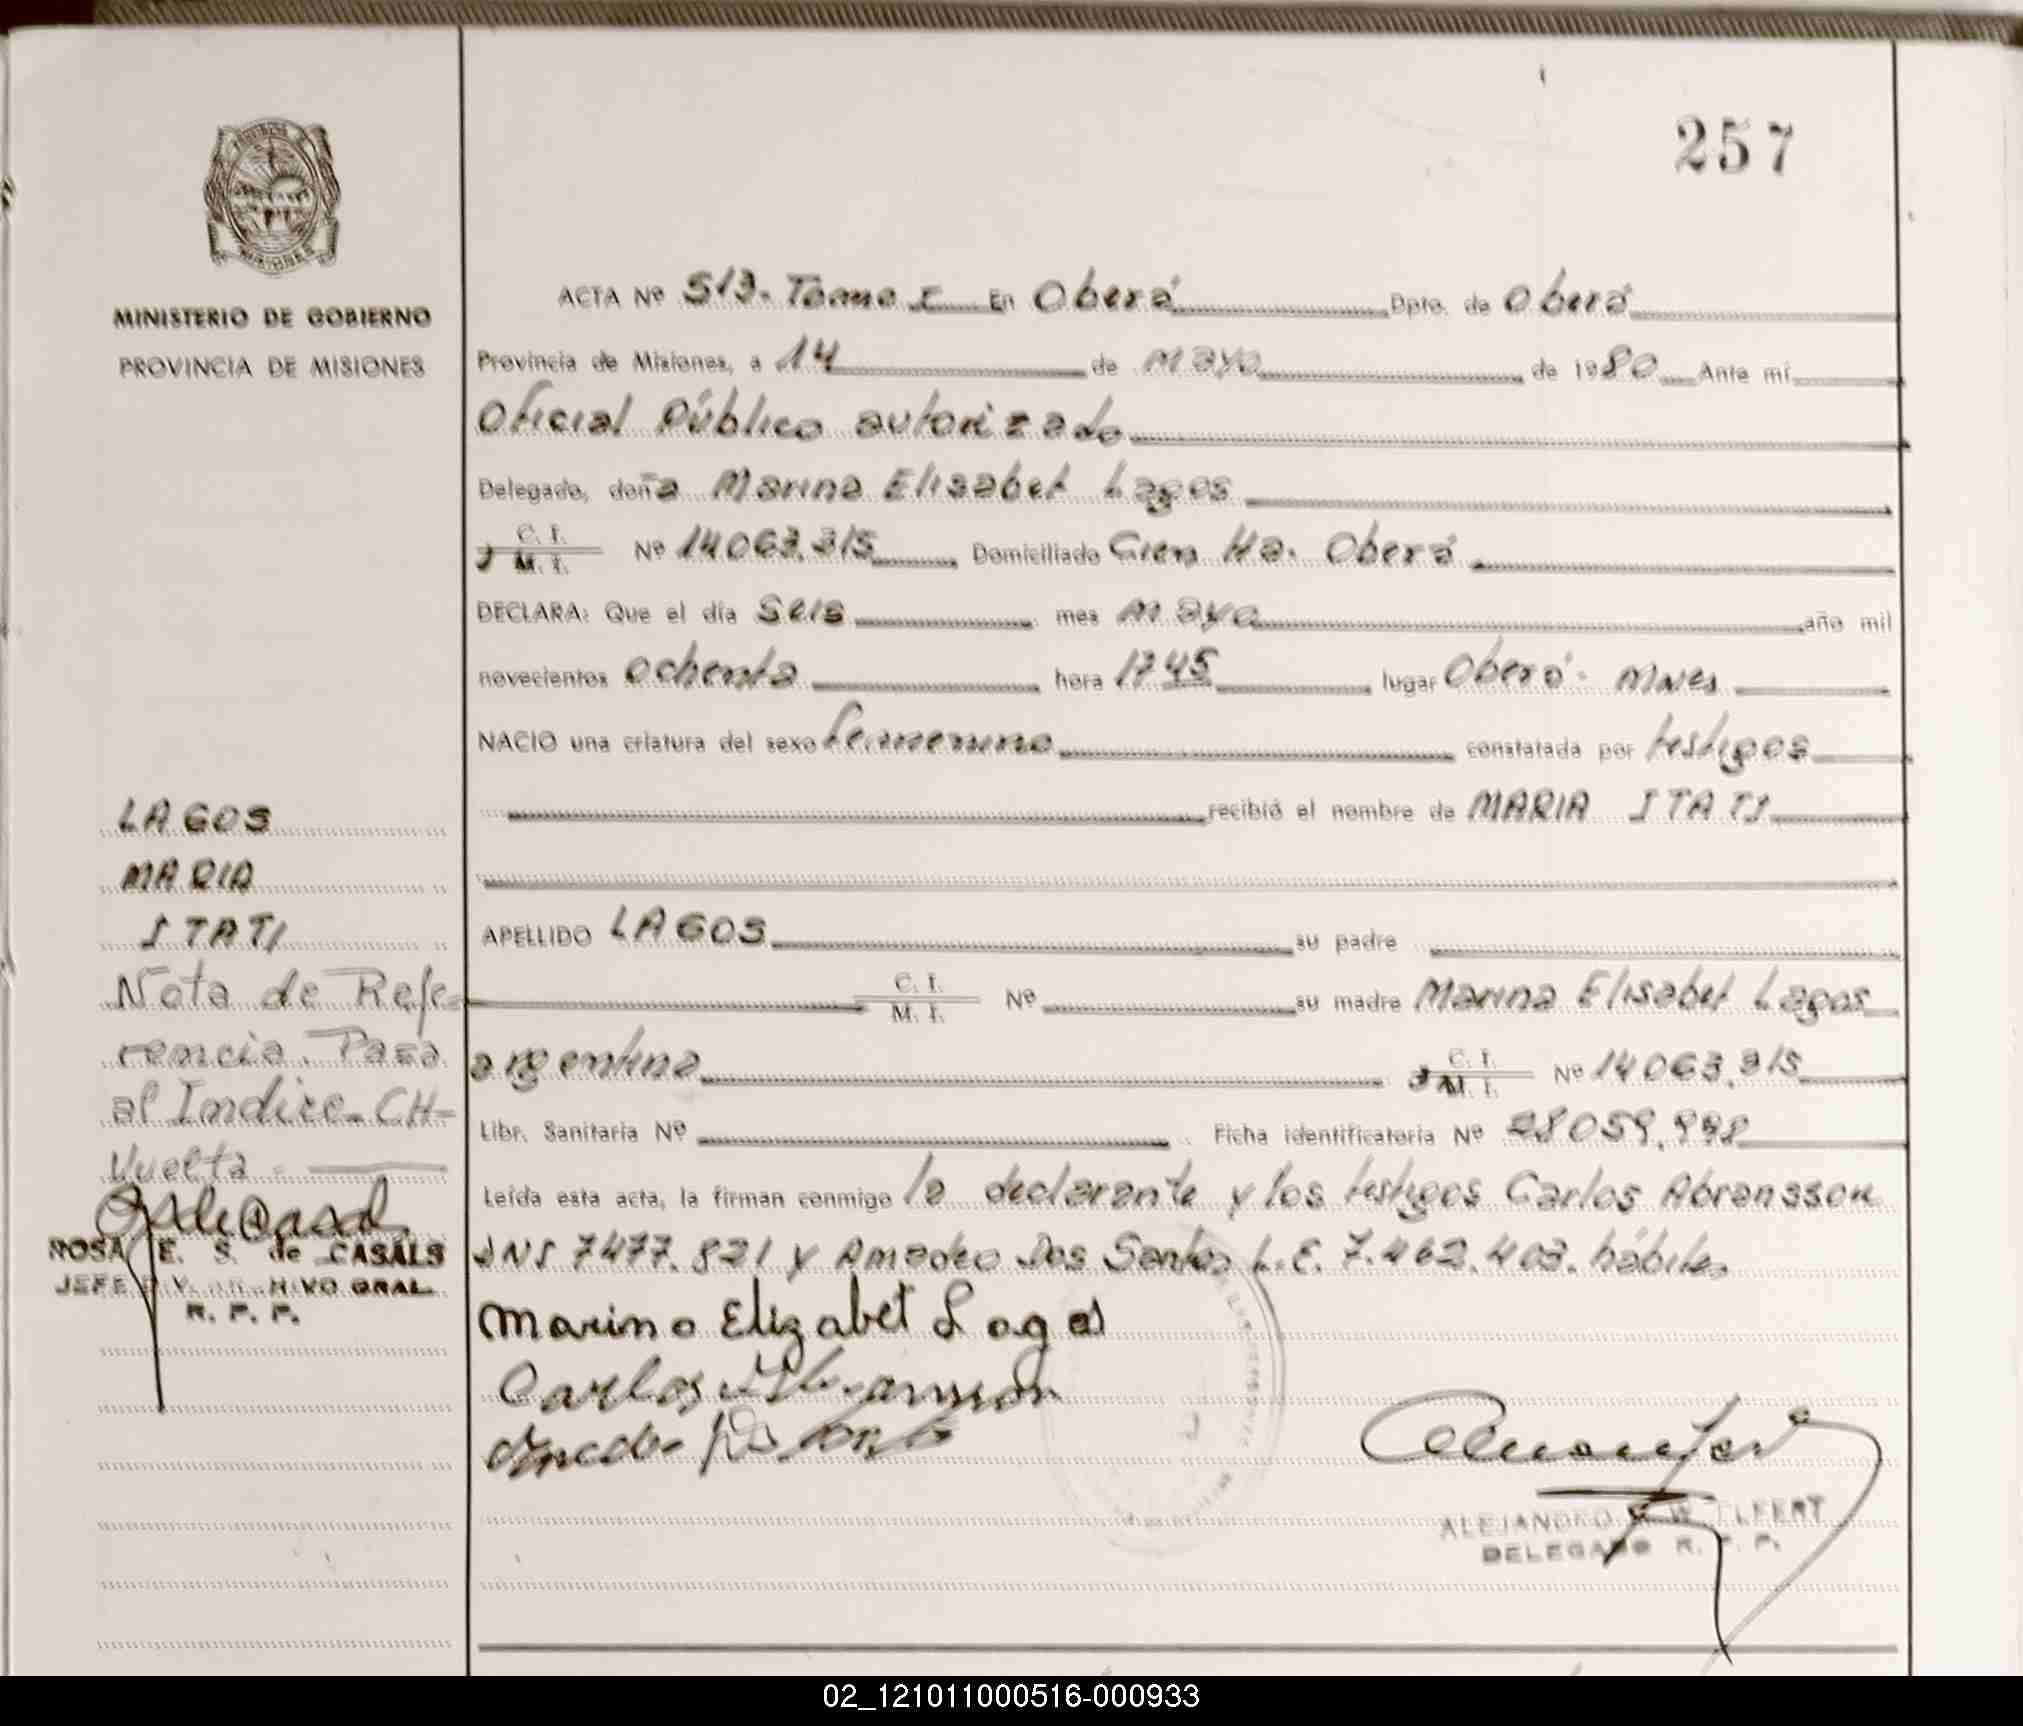 257
MISIONES
MINISTERIO DE GOBIERNO
PROVINCIA DE MISIONES
ACTA Nº 513. Tomo I En Oberá Dpto. de Oberá
Provincia de Misiones, a 14 de Mayo de 1980 Ante mí
Oficial Público autorizado
Delegado, doña Marina Elisabet Lagos
C. I.
M. I. Nº 14063.315 Domiciliado Cien Ha. Oberá
DECLARA: Que el día seis mes Mayo año mil
novecientos ochenta hora 1745 lugar Oberá - Mnes
NACIO una criatura del sexo femenino constatada por testigos
recibió el nombre de MARIA ITATI
APELLIDO LAGOS su padre
C. I.
M. I. Nº su madre Marina Elisabet Lagos
argentina C. I.
M. I. Nº 14063.315
Libr. Sanitaria Nº Ficha identificatoria Nº 28059.998
Leída esta acta, la firman conmigo la declarante y los testigos Carlos Abransson
DNI 7477.821 y Amadeo Dos Santos L.E. 7.462.403. hábiles
Marina Elizabet Lagos
Carlos
LAGOS
MARIA
ITATI
Nota de Refe-
rencia. Pasa
al Indice-CH-
Vuelta
ROSA E. S. de CASALS
JEFE HIVO GRAL.
R. P. P.
ALEJANDRO W.
DELEGADO R. P. P.
02_121011000516-000933